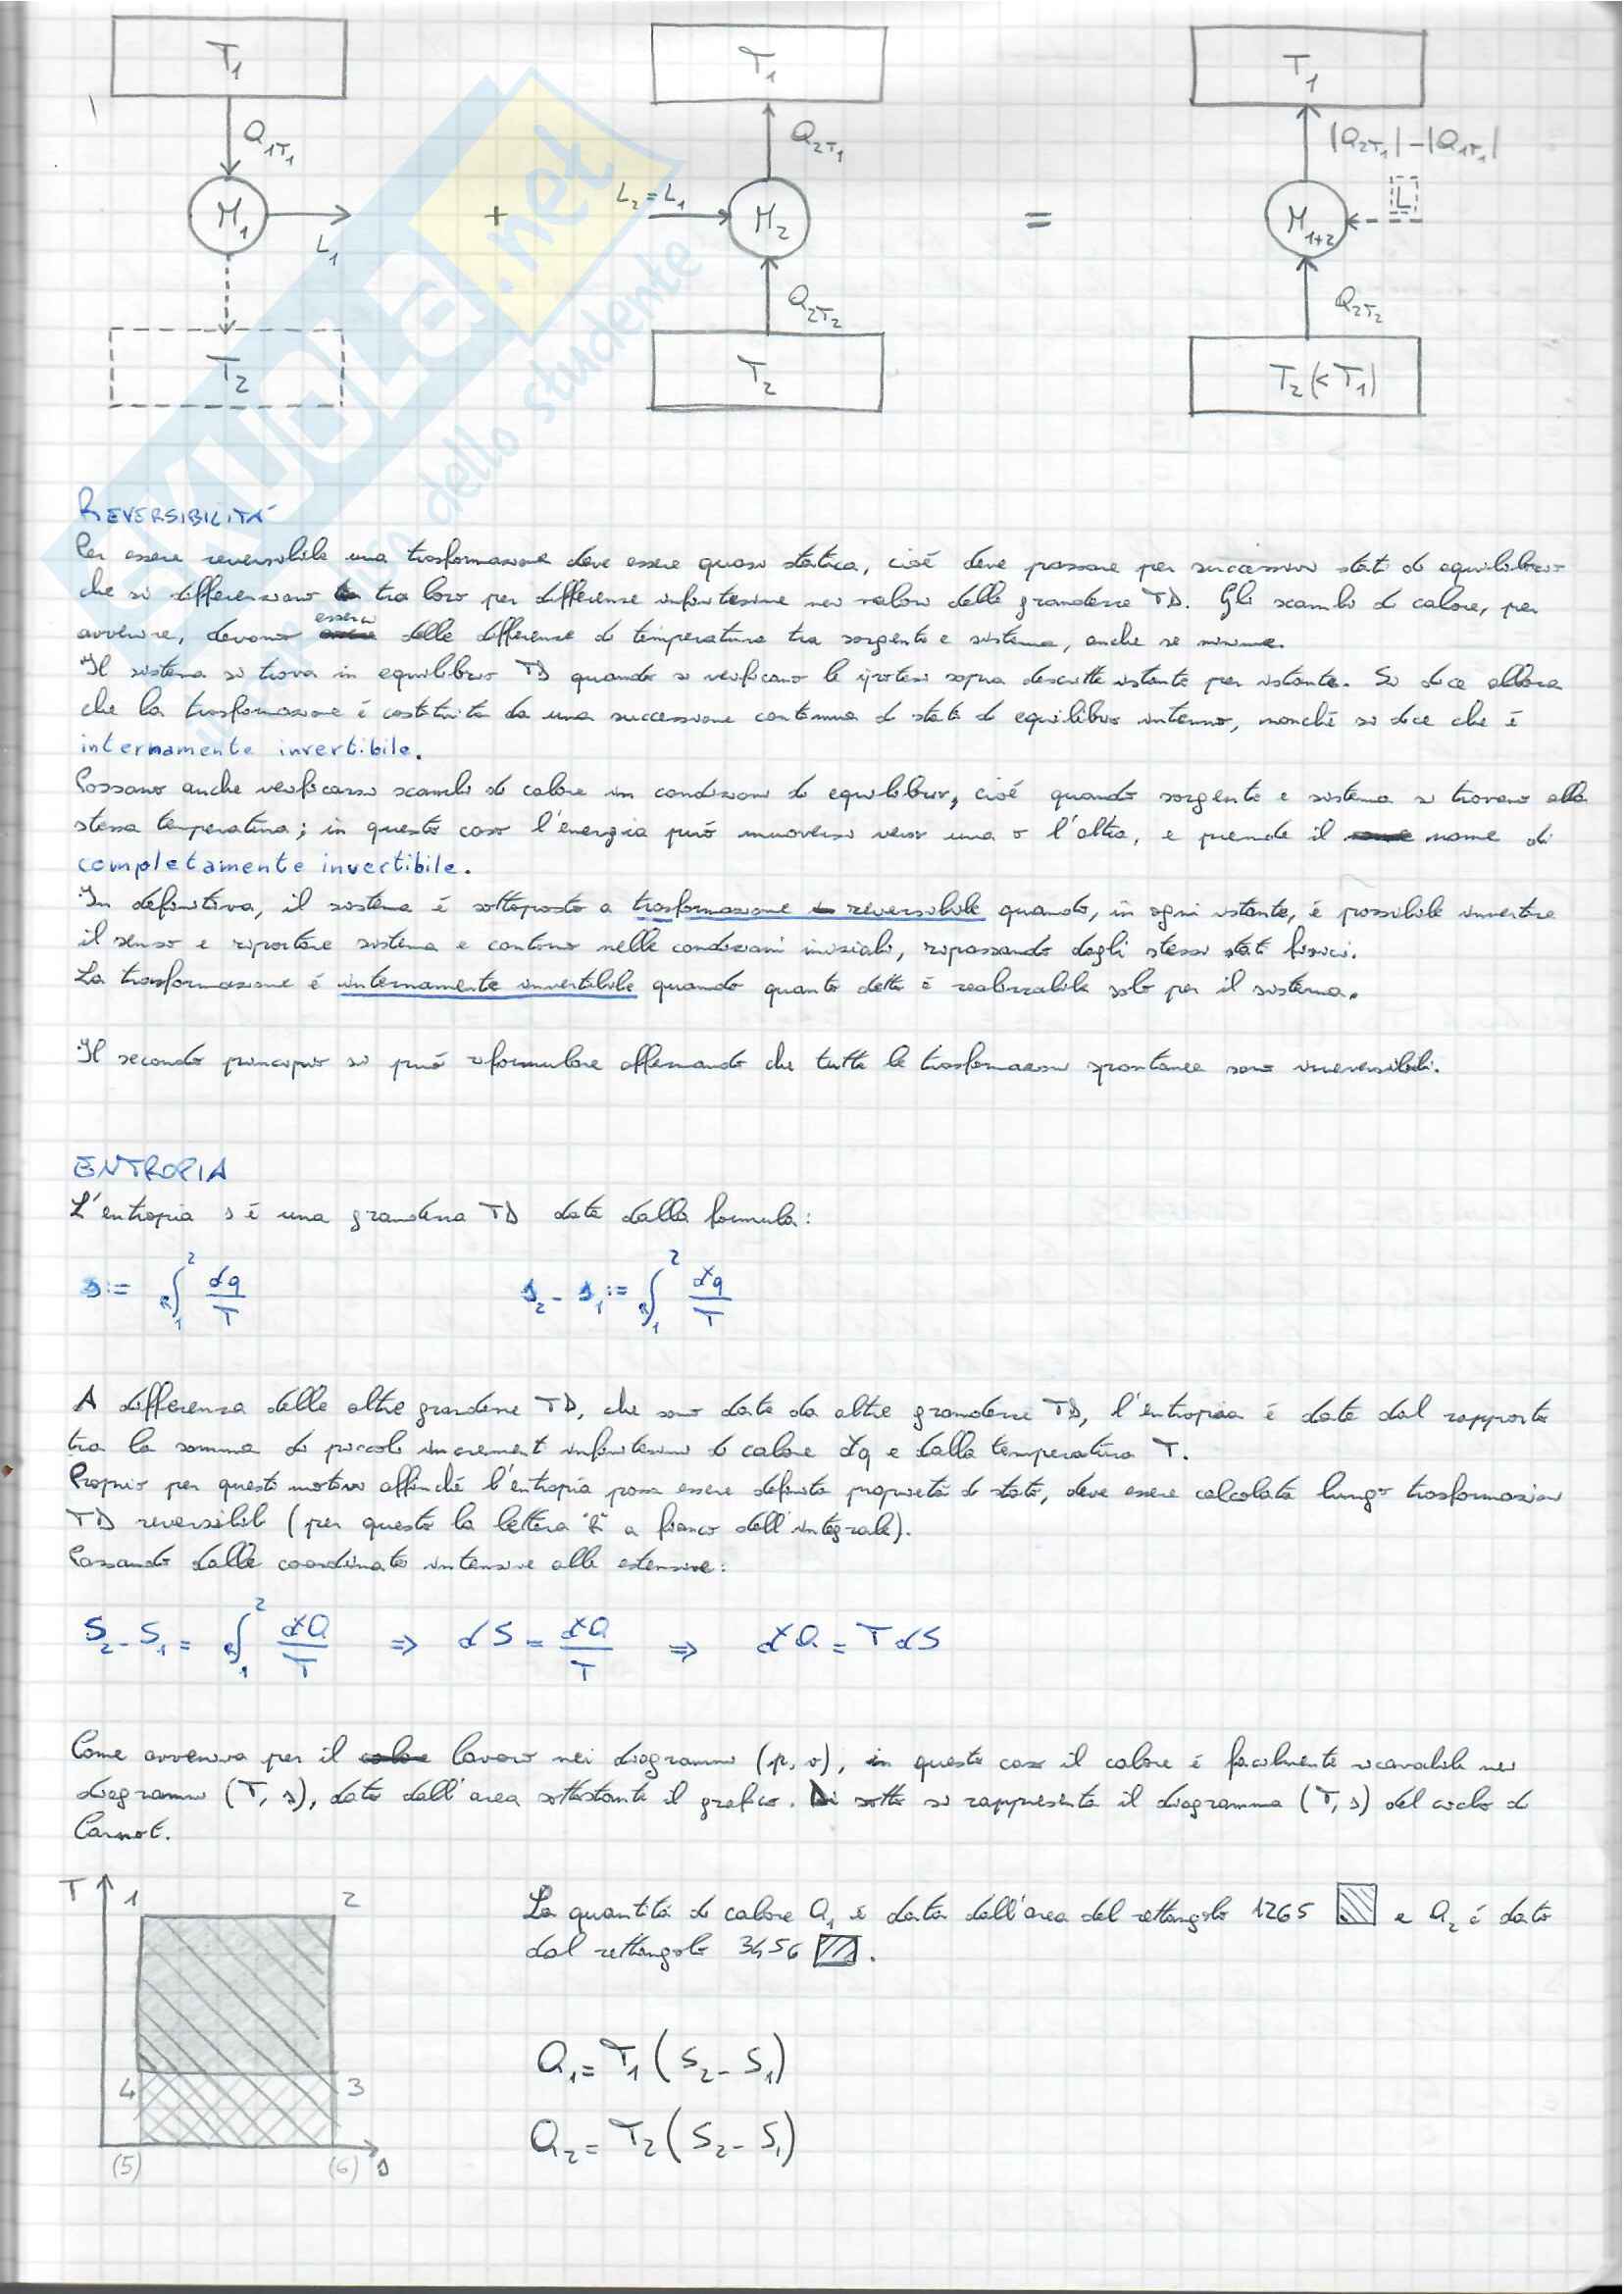 T1 T1 T1
Q1T1 Q2T1 |Q2T1|-|Q1T1|
M1 L1 + L2=L1 M2 = M1+2 L
Q2T2 Q2T2
T2 T2 T2(<T1)
SKUOLA.net
dello studente
REVERSIBILITÁ
Per essere reversibile una trasformazione deve essere quasi statica, cioé deve passare per successivi stati di equilibrio
che si differenziano tra loro per differenze infinitesime nei valori delle grandezze TD. Gli scambi di calore, per
avvenire, devono esserci delle differenze di temperatura tra sorgente e sistema, anche se minime.
Il sistema si trova in equilibrio TD quando si verificano le ipotesi sopra descritte istante per istante. Si dice allora
che la trasformazione é costituita da una successione continua di stati di equilibrio interno, nonché si dice che é
internamente invertibile.
Possono anche verificarsi scambi di calore in condizioni di equilibrio, cioé quando sorgente e sistema si trovano alla
stessa temperatura; in questo caso l'energia puó muoversi verso una o l'altra, e prende il nome di
completamente invertibile.
In definitiva, il sistema é sottoposto a trasformazione reversibile quando, in ogni istante, é possibile invertire
il senso e riportare sistema e contorno nelle condizioni iniziali, ripassando dagli stessi stati fisici.
La trasformazione é internamente invertibile quando quanto detto é realizzabile solo per il sistema.
Il secondo principio si puó riformulare affermando che tutte le trasformazioni spontanee sono irreversibili.
ENTROPIA
L'entropia s é una grandezza TD data dalla formula:
s := R∫₁² đq/T s2 - s1 := R∫₁² đq/T
A differenza delle altre grandezze TD, che sono date da altre grandezze TD, l'entropia é data dal rapporto
tra la somma di piccoli incrementi infinitesimi di calore đq e dalla temperatura T.
Proprio per questo motivo affinché l'entropia possa essere definita proprietá di stato, deve essere calcolata lungo trasformazioni
TD reversibili (per questo la lettera "R" a fianco dell'integrale).
Passando dalle coordinate intensive alle estensive:
S2 - S1 = R∫₁² đQ/T ⇒ dS = đQ/T ⇒ đQ = T dS
Come avveniva per il lavoro nei diagrammi (p, v), in questo caso il calore é facilmente ricavabile nei
diagrammi (T, s), dato dall'area sottostante il grafico. Di sotto si rappresenta il diagramma (T, s) del ciclo di
Carnot.
T 1 2
4 3
(5) (6) s
La quantitá di calore Q1 é data dall'area del rettangolo 1265 e Q2 é dato
dal rettangolo 3456 .
Q1 = T1 (S2 - S1)
Q2 = T2 (S2 - S1)